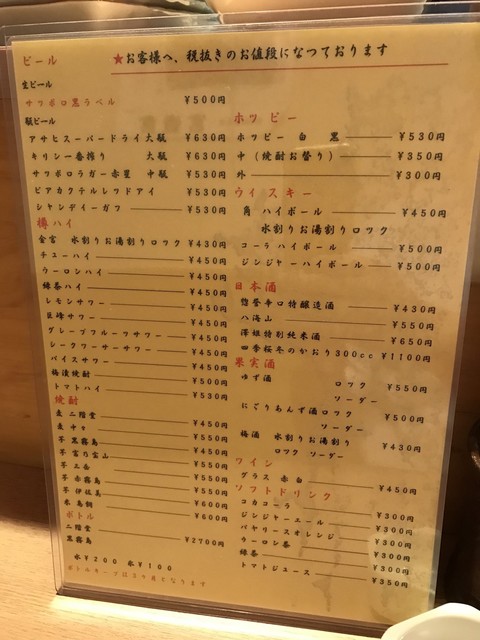 ビール
★お客様へ、税抜きのお値段になっております
生ビール
サッポロ黒ラベル ¥500円
瓶ビール
アサヒスーパードライ 大瓶 ¥630円
キリン一番搾り 大瓶 ¥630円
サッポロラガー赤星 中瓶 ¥530円
ビアカクテルレッドアイ ¥530円
シャンディーガフ ¥530円
樽ハイ
金宮 水割りお湯割りロック ¥430円
チューハイ ¥450円
ウーロンハイ ¥450円
緑茶ハイ ¥450円
レモンサワー ¥450円
巨峰サワー ¥450円
グレープフルーツサワー ¥450円
シークワーサーサワー ¥450円
バイスサワー ¥450円
梅漬焼酎 ¥500円
トマトハイ ¥530円
焼酎
麦 二階堂 ¥450円
麦 中々 ¥550円
芋 黒霧島 ¥450円
芋 富乃宝山 ¥550円
芋 三岳 ¥550円
芋 赤霧島 ¥550円
芋 伊佐美 ¥600円
米 鳥飼 ¥600円
ボトル
二階堂
黒霧島 ¥2700円
氷¥200 水¥100
ボトルキープは3ケ月となります
ホッピー
ホッピー 白 黒 ¥530円
中(焼酎お替り) ¥350円
外 ¥300円
ウイスキー
角 ハイボール ¥450円
水割りお湯割りロック
コーラハイボール ¥500円
ジンジャーハイボール ¥500円
日本酒
惣誉辛口特醸造酒 ¥430円
八海山 ¥550円
澤姫特別純米酒 ¥650円
四季桜冬のかおり300cc ¥1100円
果実酒
ゆず酒 ロック ¥550円
ソーダー
にごりあんず酒ロック ¥500円
ソーダー
梅酒 水割りお湯割り ¥430円
ロック ソーダー
ワイン
グラス 赤白 ¥450円
ソフトドリンク
コカコーラ ¥300円
ジンジャーエール ¥300円
バヤリースオレンジ ¥300円
ウーロン茶 ¥300円
緑茶 ¥300円
トマトジュース ¥350円